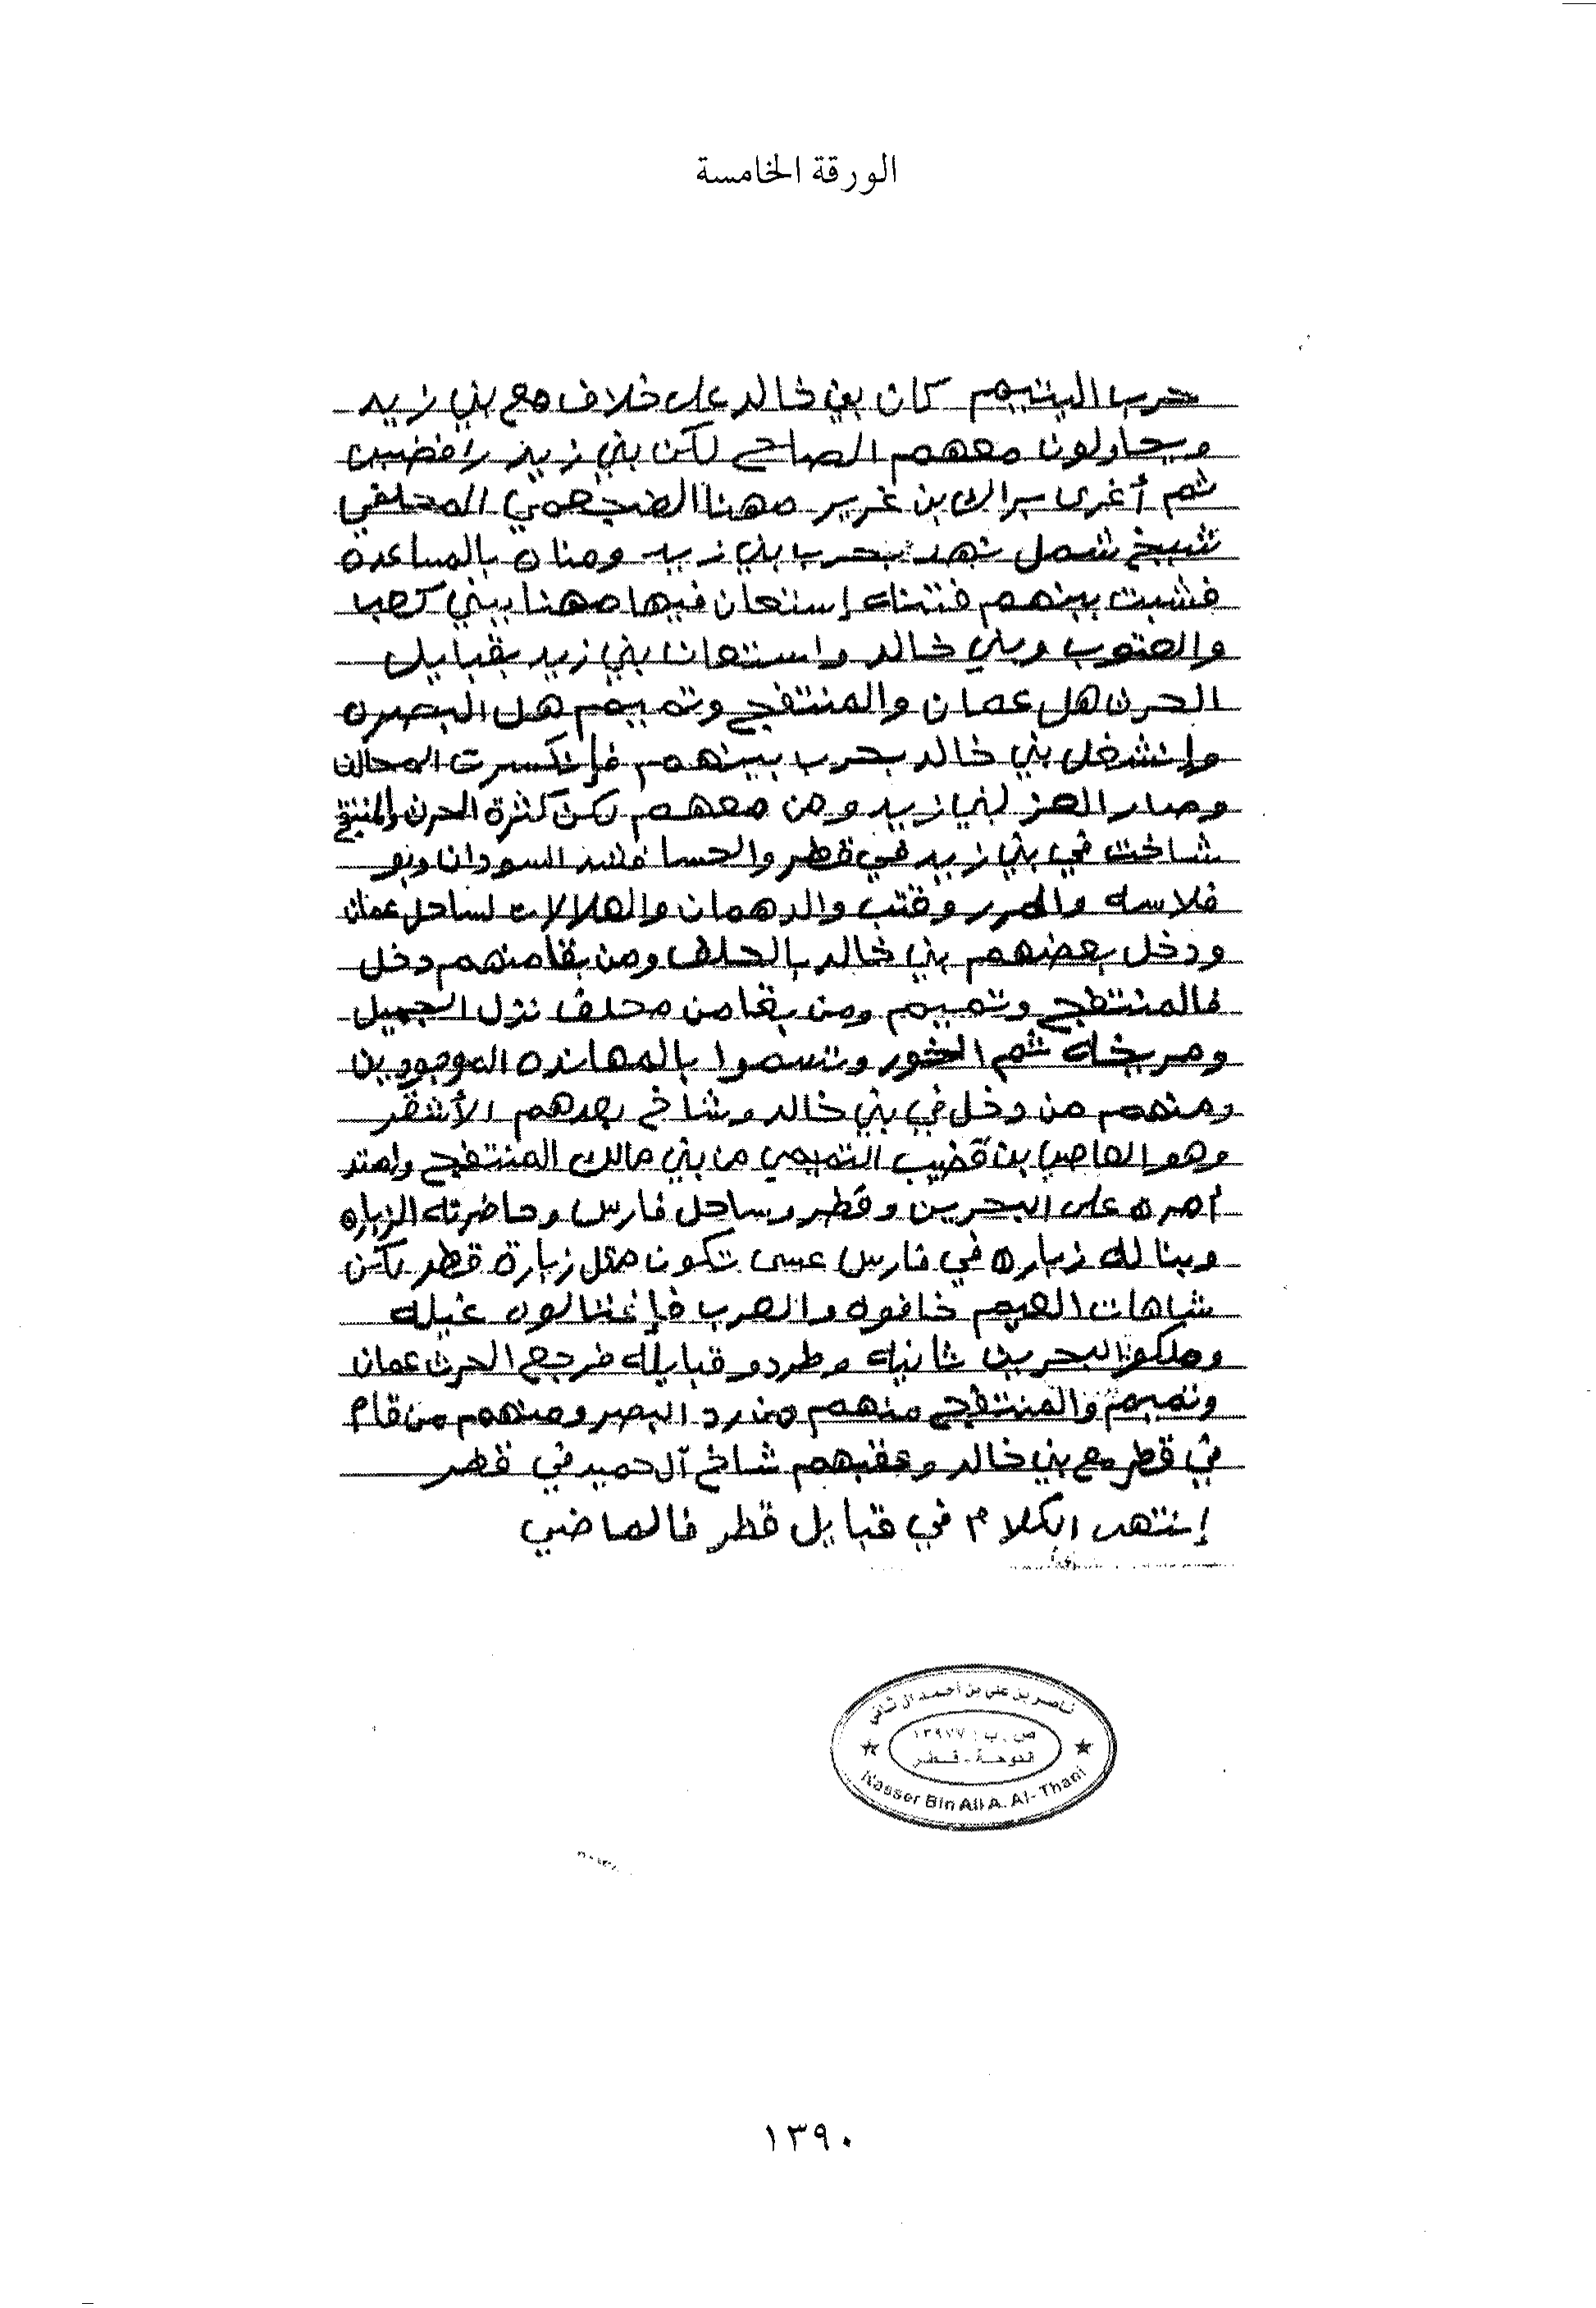 الورقة الخامسة
حرب اليتييم كان بني خالد على خلاف مع بني زيد
ويحاولون معهم الصلح لكن بني زيد رافضين
ثم أغرى براك بن غرير مهنا الضجعمي المحلفي
شيخ شمل نجد بحرب بني زيد ومناه بالمساعده
فشبت بينهم فتنتاه إستعان فيها مهنا ببني كعب
والعتوب وبني خالد واستعان بني زيد بقبايل
الحرث هل عمان والمنتفج وتميم هل البصره
وإنشغل بني خالد بحرب بينهم فإنكسرت المحالف
وصار العز لبني زيد ومن معهم لكن كثرة الحرث والمنتفج
شاخت في بني زيد في قطر والحسا فشد السودان وبو
فلاسه والمرر وقتب والدهمان والهلالات لساحل عمان
ودخل بعضهم بني خالد بالحلف ومن بقا منهم دخل
فالمنتفج وتميم ومن بقا من محلف نزل الجميل
ومريخه ثم الخور وتسموا بالمهانده الموجودين
ومنهم من دخل في بني خالد وشاخ بعدهم الأشقر
وهو العاصي بن قضيب التميمي من بني مالك المنتفج وامتد
امره على البحرين وقطر وساحل فارس وحاضرته الزباره
وبنا له زباره في فارس عسى تكون مثل زبارة قطر لكن
شاهات العجم خافوه والعرب فإغتالوه غيله
وملكوا البحرين ثانيه وطردو قبايله فرجع الحرث عمان
وتميم والمنتفج منهم من رد البصر ومنهم من قام
في قطر مع بني خالد وعقبهم شاخ آل حميد في قطر
إنتهى الكلام في قبايل قطر فالماضي
ناصر بن علي بن أحمد آل ثاني
ص . ب : ١٣٩٧٧
الدوحة - قطر
Nasser Bin Ali A. Al-Thani
١٣٩٠